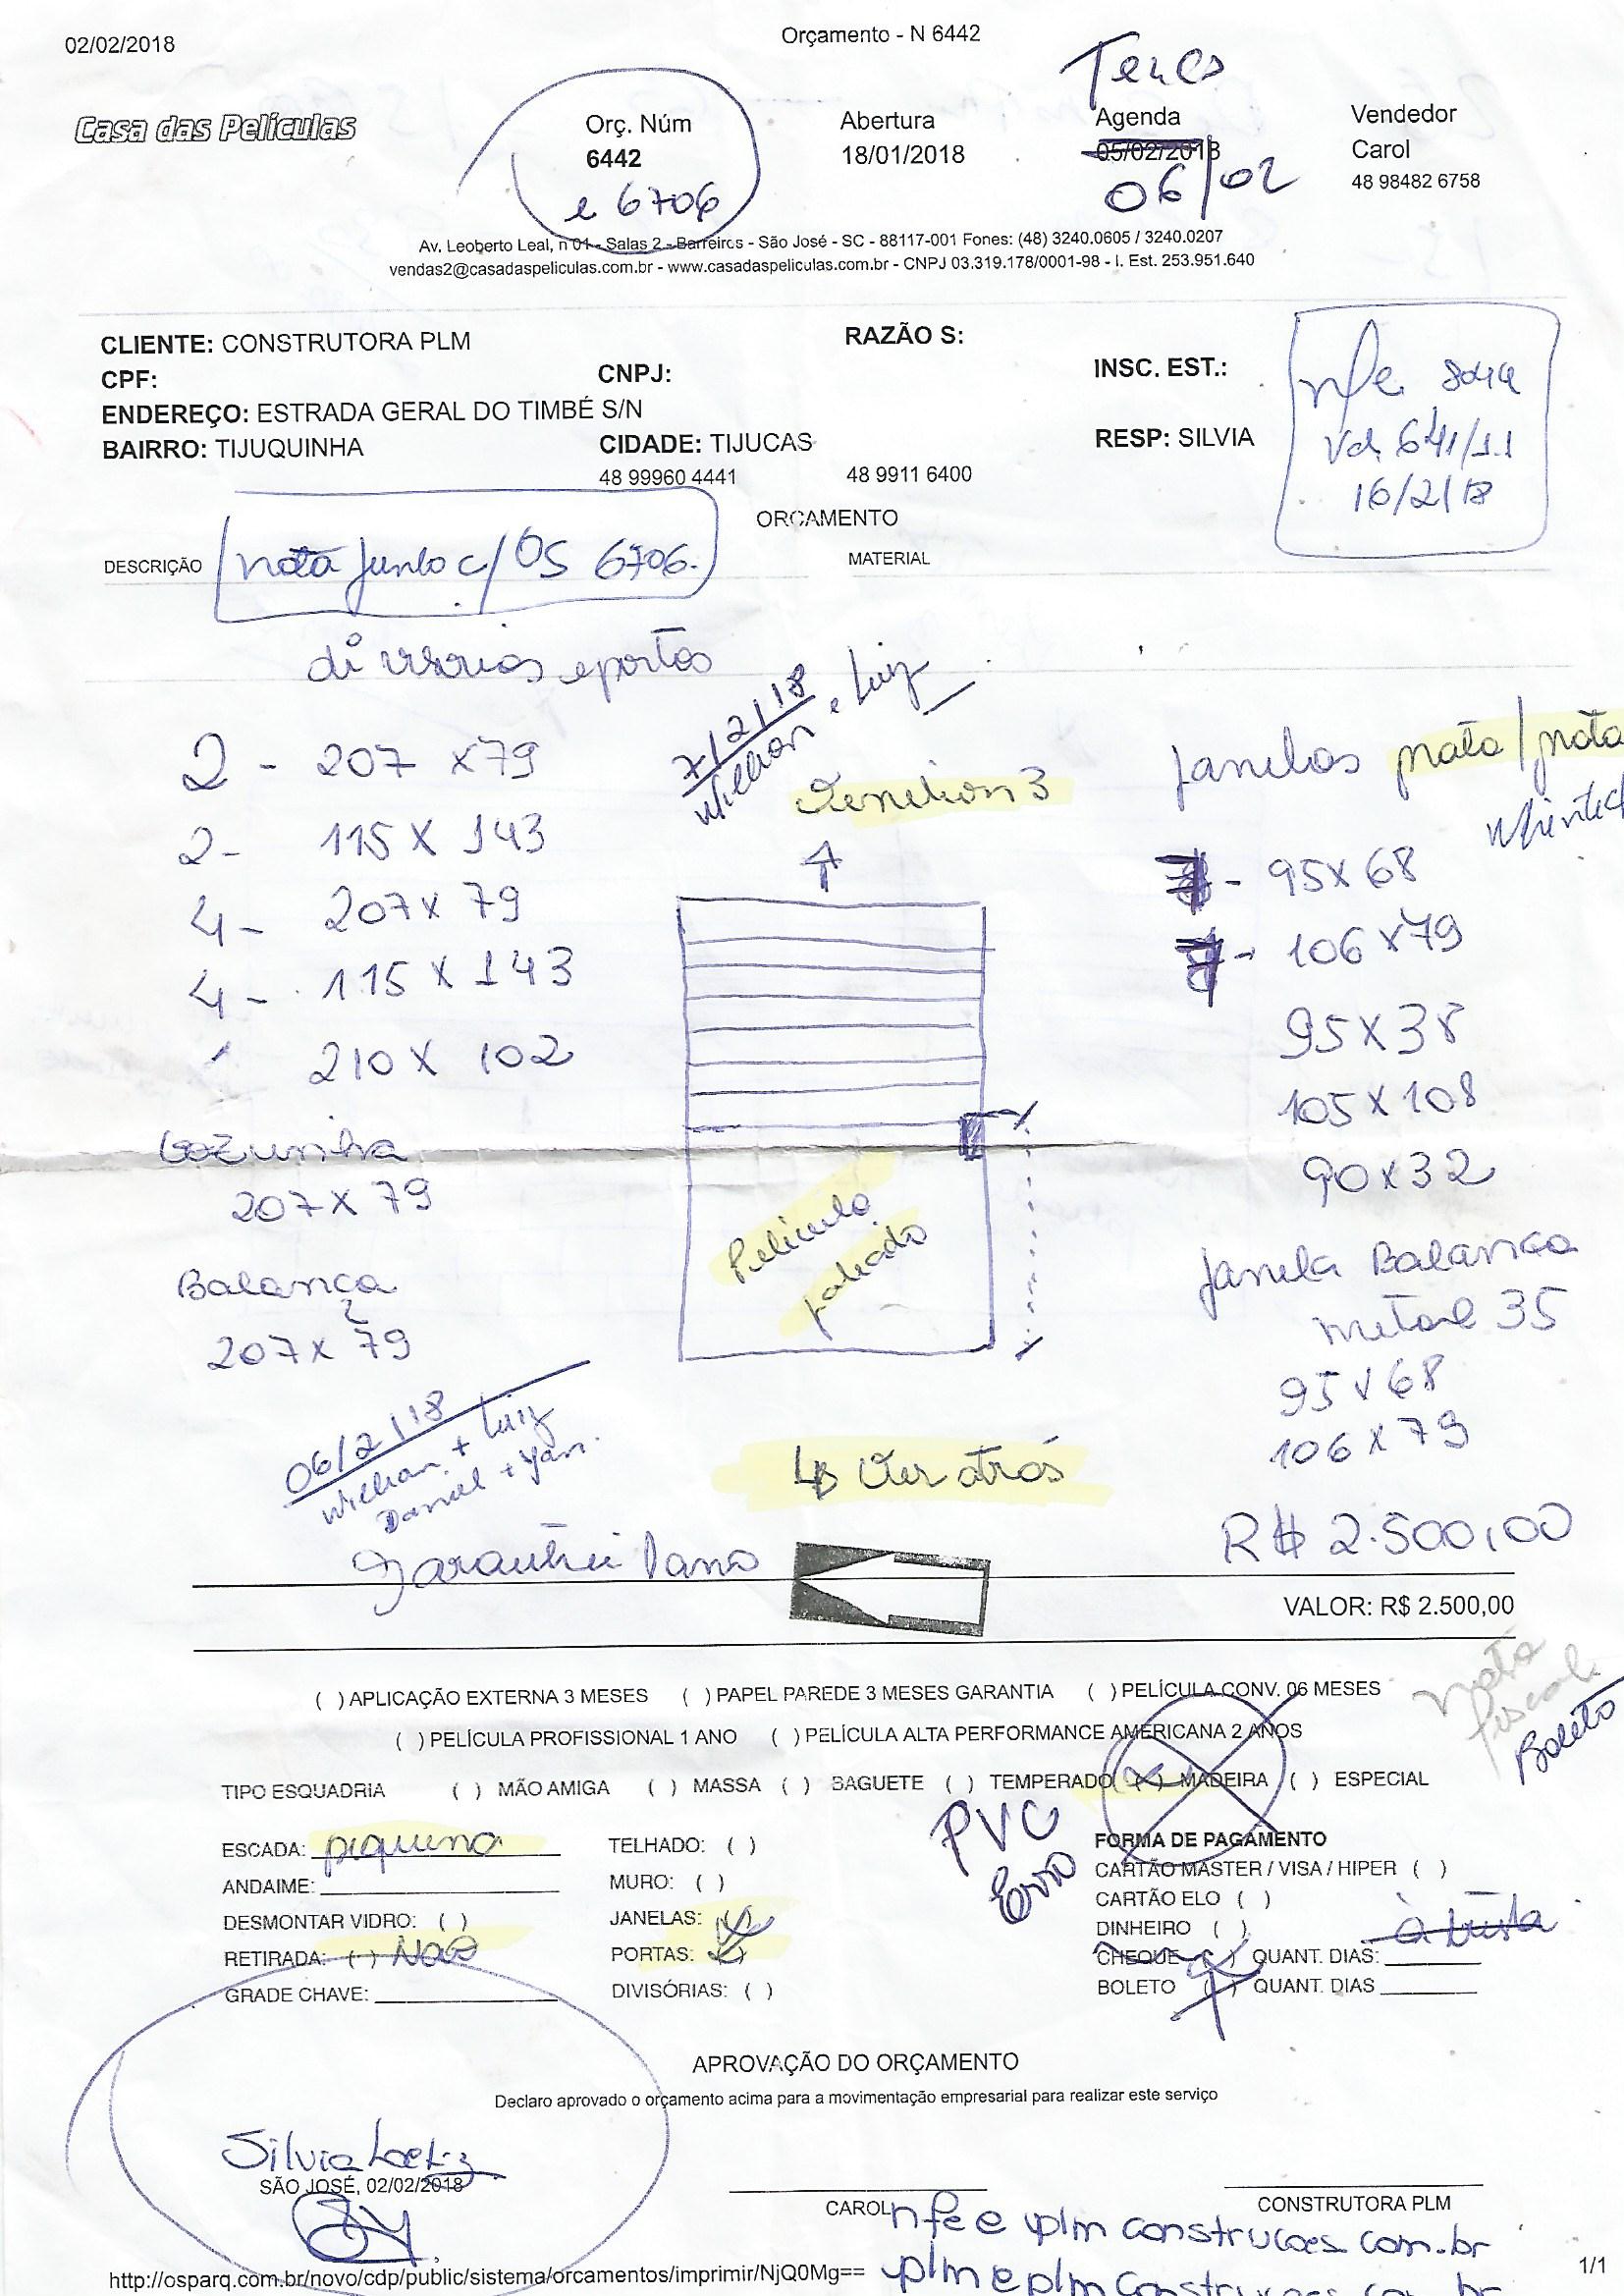 02/02/2018
Orçamento - N 6442
Casa das Películas
Orç. Núm
6442
e 6706
Abertura
18/01/2018
Agenda
05/02/2018
06/02
Vendedor
Carol
48 98482 6758
Av. Leoberto Leal, n 01 - Salas 2 - Barreiros - São José - SC - 88117-001 Fones: (48) 3240.0605 / 3240.0207
vendas2@casadaspeliculas.com.br - www.casadaspeliculas.com.br - CNPJ 03.319.178/0001-98 - I. Est. 253.951.640
CLIENTE: CONSTRUTORA PLM
RAZÃO S:
CPF:
CNPJ:
INSC. EST.:
ENDEREÇO: ESTRADA GERAL DO TIMBÉ S/N
BAIRRO: TIJUQUINHA
CIDADE: TIJUCAS
RESP: SILVIA
48 99960 4441
48 9911 6400
nfe 8044
Vd, 641/11
16/2/18
ORÇAMENTO
DESCRIÇÃO
nota junto c/ OS 6706.
MATERIAL
divisorias e portas
7/2/18
Willian e Luiz
2 - 207 x 79
2 - 115 x 143
4 - 207 x 79
4 - 115 x 143
210 x 102
Cozinha
207 x 79
Balança
207 x 79
06/2/18
Willian + Luiz
Daniel + Yan.
3
Pelicula
jateado
Ver atrás
Janelas prata/prata
- 95 x 68
- 106 x 79
95 x 38
105 x 108
90 x 32
Janela Balança
metal 35
95 x 68
106 x 79
R$ 2.500,00
VALOR: R$ 2.500,00
nota
fiscal
Boleto
( ) APLICAÇÃO EXTERNA 3 MESES ( ) PAPEL PAREDE 3 MESES GARANTIA ( ) PELÍCULA CONV. 06 MESES
( ) PELÍCULA PROFISSIONAL 1 ANO ( ) PELÍCULA ALTA PERFORMANCE AMERICANA 2 ANOS
TIPO ESQUADRIA ( ) MÃO AMIGA ( ) MASSA ( ) BAGUETE ( ) TEMPERADO (x) MADEIRA ( ) ESPECIAL
PVC
ESCADA: pequena
ANDAIME:
DESMONTAR VIDRO: ( )
RETIRADA: ( ) Não
GRADE CHAVE:
TELHADO: ( )
MURO: ( )
JANELAS: (x)
PORTAS: (x)
DIVISÓRIAS: ( )
FORMA DE PAGAMENTO
CARTÃO MASTER / VISA / HIPER ( )
CARTÃO ELO ( )
DINHEIRO ( )
CHEQUE (x) QUANT. DIAS: À vista
BOLETO (x) QUANT. DIAS
APROVAÇÃO DO ORÇAMENTO
Declaro aprovado o orçamento acima para a movimentação empresarial para realizar este serviço
SÃO JOSÉ, 02/02/2018
CAROL
CONSTRUTORA PLM
nfe e plm construcoes.com.br
http://osparq.com.br/novo/cdp/public/sistema/orcamentos/imprimir/NjQ0Mg==
1/1